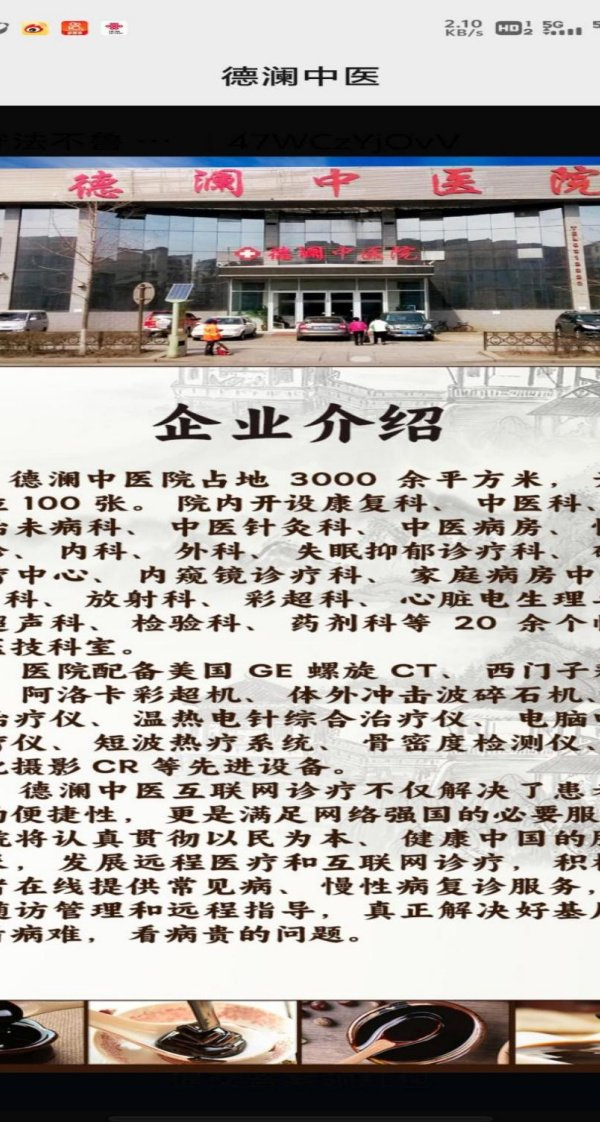 2.10 KB/s HD 1 2 5G 5
德澜中医
47WCzYjOvV
德澜中医院
德澜中医院
企业介绍
德澜中医院占地 3000 余平方米，
100 张。 院内开设康复科、 中医科、
未病科、 中医针灸科、 中医病房、
、 内科、 外科、 失眠抑郁诊疗科、
中心、 内窥镜诊疗科、 家庭病房中
科、 放射科、 彩超科、 心脏电生理
声科、 检验科、 药剂科等 20 余个
技科室。
医院配备美国 GE 螺旋 CT、 西门子
阿洛卡彩超机、 体外冲击波碎石机、
疗仪、 温热电针综合治疗仪、 电脑
仪、 短波热疗系统、 骨密度检测仪、
摄影 CR 等先进设备。
德澜中医互联网诊疗不仅解决了患
便捷性， 更是满足网络强国的必要服
院将认真贯彻以民为本、 健康中国的
， 发展远程医疗和互联网诊疗， 积
在线提供常见病、 慢性病复诊服务，
随访管理和远程指导， 真正解决好基
病难， 看病贵的问题。